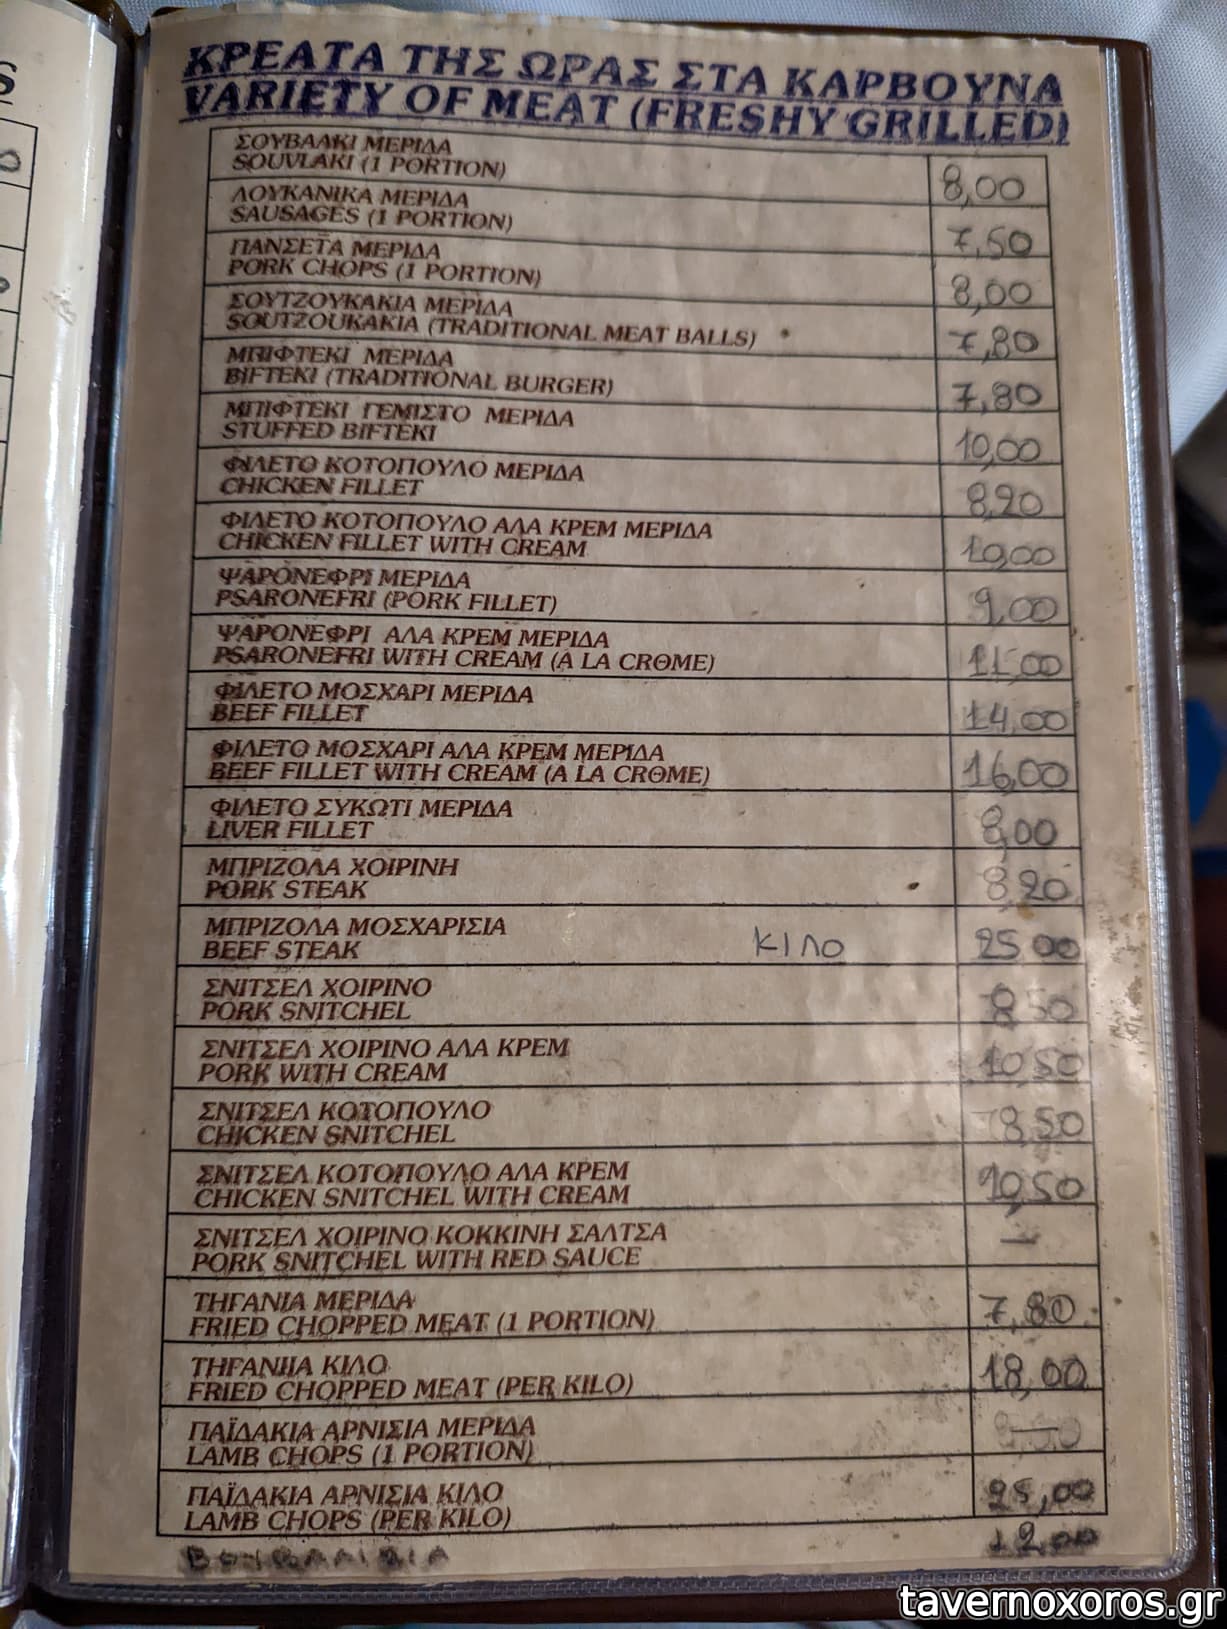 ΚΡΕΑΤΑ ΤΗΣ ΩΡΑΣ ΣΤΑ ΚΑΡΒΟΥΝΑ
VARIETY OF MEAT (FRESHY GRILLED)
ΣΟΥΒΛΑΚΙ ΜΕΡΙΔΑ
SOUVLAKI (1 PORTION) 8,00
ΛΟΥΚΑΝΙΚΑ ΜΕΡΙΔΑ
SAUSAGES (1 PORTION) 7,50
ΠΑΝΣΕΤΑ ΜΕΡΙΔΑ
PORK CHOPS (1 PORTION) 8,00
ΣΟΥΤΖΟΥΚΑΚΙΑ ΜΕΡΙΔΑ
SOUTZOUKAKIA (TRADITIONAL MEAT BALLS) 7,80
ΜΠΙΦΤΕΚΙ ΜΕΡΙΔΑ
BIFTEKI (TRADITIONAL BURGER) 7,80
ΜΠΙΦΤΕΚΙ ΓΕΜΙΣΤΟ ΜΕΡΙΔΑ
STUFFED BIFTEKI 10,00
ΦΙΛΕΤΟ ΚΟΤΟΠΟΥΛΟ ΜΕΡΙΔΑ
CHICKEN FILLET 8,20
ΦΙΛΕΤΟ ΚΟΤΟΠΟΥΛΟ ΑΛΑ ΚΡΕΜ ΜΕΡΙΔΑ
CHICKEN FILLET WITH CREAM 10,00
ΨΑΡΟΝΕΦΡΙ ΜΕΡΙΔΑ
PSARONEFRI (PORK FILLET) 9,00
ΨΑΡΟΝΕΦΡΙ ΑΛΑ ΚΡΕΜ ΜΕΡΙΔΑ
PSARONEFRI WITH CREAM (A LA CRΘME) 11,00
ΦΙΛΕΤΟ ΜΟΣΧΑΡΙ ΜΕΡΙΔΑ
BEEF FILLET 14,00
ΦΙΛΕΤΟ ΜΟΣΧΑΡΙ ΑΛΑ ΚΡΕΜ ΜΕΡΙΔΑ
BEEF FILLET WITH CREAM (A LA CRΘME) 16,00
ΦΙΛΕΤΟ ΣΥΚΩΤΙ ΜΕΡΙΔΑ
LIVER FILLET 8,00
ΜΠΡΙΖΟΛΑ ΧΟΙΡΙΝΗ
PORK STEAK 8,20
ΜΠΡΙΖΟΛΑ ΜΟΣΧΑΡΙΣΙΑ
BEEF STEAK ΚΙΛΟ 25 00
ΣΝΙΤΣΕΛ ΧΟΙΡΙΝΟ
PORK SNITCHEL 8 50
ΣΝΙΤΣΕΛ ΧΟΙΡΙΝΟ ΑΛΑ ΚΡΕΜ
PORK WITH CREAM 10,50
ΣΝΙΤΣΕΛ ΚΟΤΟΠΟΥΛΟ
CHICKEN SNITCHEL 8,50
ΣΝΙΤΣΕΛ ΚΟΤΟΠΟΥΛΟ ΑΛΑ ΚΡΕΜ
CHICKEN SNITCHEL WITH CREAM 10,50
ΣΝΙΤΣΕΛ ΧΟΙΡΙΝΟ ΚΟΚΚΙΝΗ ΣΑΛΤΣΑ
PORK SNITCHEL WITH RED SAUCE —
ΤΗΓΑΝΙΑ ΜΕΡΙΔΑ
FRIED CHOPPED MEAT (1 PORTION) 7,80
ΤΗΓΑΝΙΙΑ ΚΙΛΟ
FRIED CHOPPED MEAT (PER KILO) 18,00
ΠΑΪΔΑΚΙΑ ΑΡΝΙΣΙΑ ΜΕΡΙΔΑ
LAMB CHOPS (1 PORTION) —
ΠΑΪΔΑΚΙΑ ΑΡΝΙΣΙΑ ΚΙΛΟ
LAMB CHOPS (PER KILO) 25,00
tavernoxoros.gr